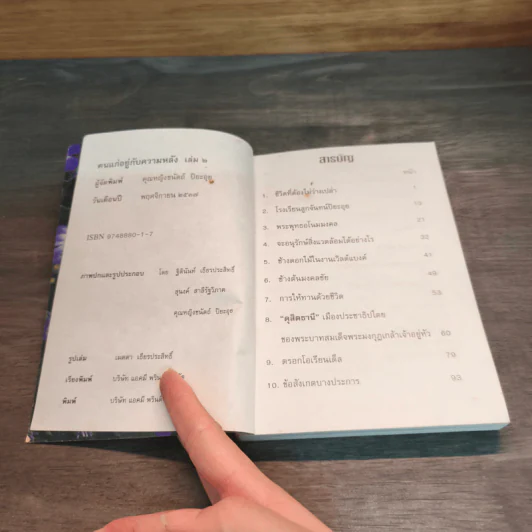 คนแก่อยู่กับความหลัง เล่ม ๒
ผู้จัดพิมพ์ คุณหญิงชนัตถ์ ปิยะอุย
วันเดือนปี พฤศจิกายน ๒๕๓๗
ISBN 9748890-1-7
ภาพปกและรูปประกอบ โดย ฐิตินันท์ เธียรประสิทธิ์
สุนงค์ สาลิรัฐวิภาค
คุณหญิงชนัตถ์ ปิยะอุย
รูปเล่ม เธียรประสิทธิ์
เรียงพิมพ์ บริษัท แอคมี พรินติ้ง
พิมพ์ บริษัท แอคมี พรินติ้ง
สารบัญ
หน้า
1. ชีวิตที่ต้องไม่ว่างเปล่า 1
2. โรงเรียนลูกจันทน์ปิยะอุย 13
3. พระพุทธอโนมมงคล 27
4. จะอนุรักษ์สิ่งแวดล้อมได้อย่างไร 33
5. ช้างดอกไม้ในงานเวิลด์แบงค์ 41
6. ช้างต้นมงคลชัย 49
7. การให้ทานด้วยชีวิต 53
8. "ดุสิตธานี" เมืองประชาธิปไตย
ของพระบาทสมเด็จพระมงกุฎเกล้าเจ้าอยู่หัว 60
9. ตรอกโอเรียนเต็ล 79
10. ข้อสังเกตบางประการ 93